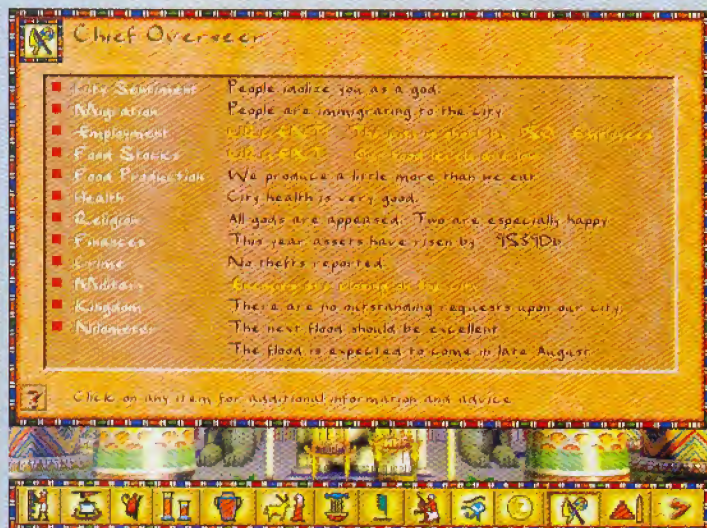 Chief Overseer
City Sentiment People idolize you as a god.
Migration People are immigrating to the city
Employment URGENT The city is short by Employees
Food Stocks URGENT Our food levels are low
Food Production We produce a little more than we eat
Health City health is very good.
Religion All gods are appeased. Two are especially happy
Finances This year assets have risen by 9839Db
Crime No thefts reported.
Military Enemies are closing on the city
Kingdom There are no outstanding requests upon our city.
Nilometer The next flood should be excellent
The flood is expected to come in late August
? Click on any item for additional information and advice